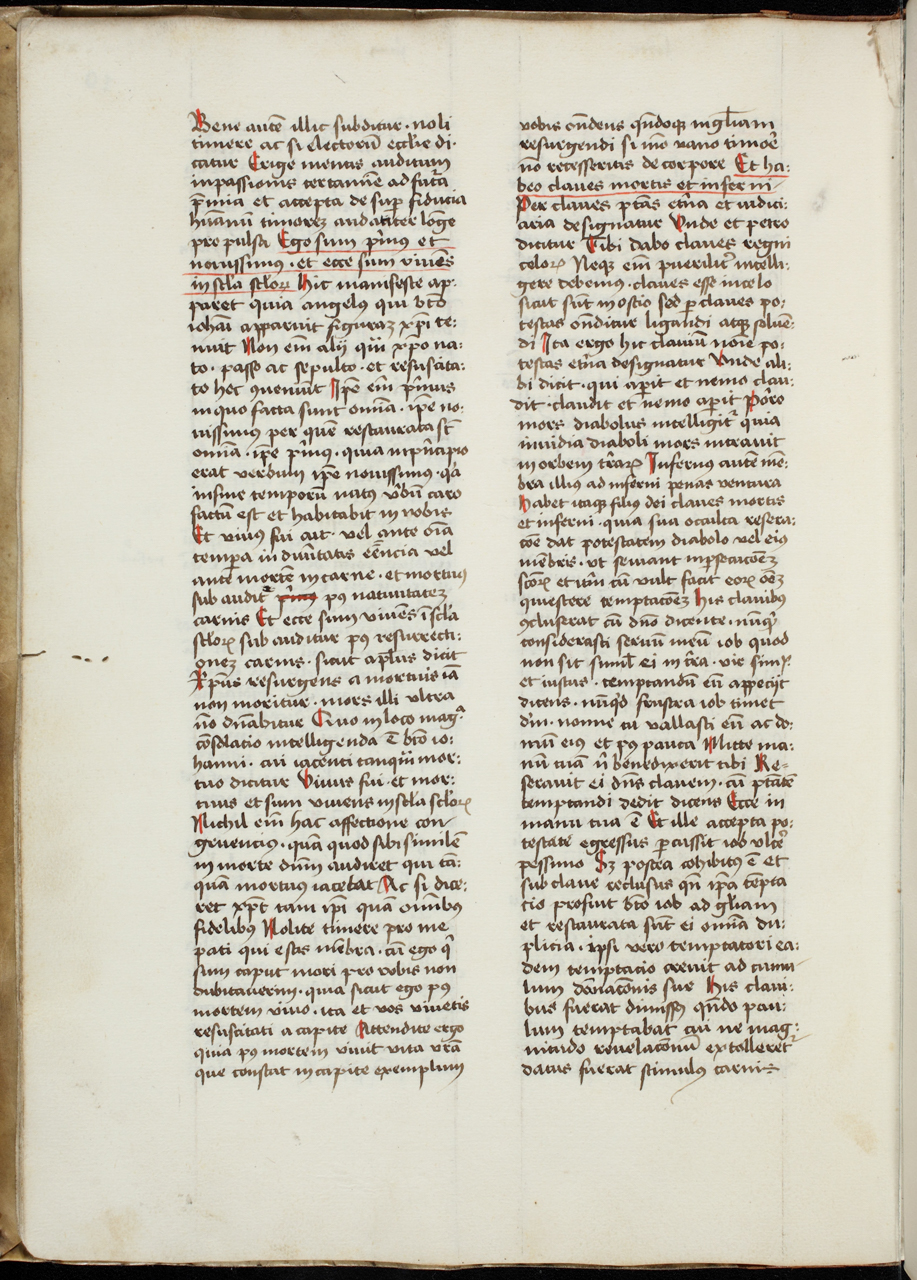 Bene autē illic subditur · noli
timere ac si electorū ecclīe di-
catur Erige mentis auditum
in passionis certamīe ad futā
p̄mia et accepta de sup fiducia
hūanū timorez audaciter longe
propulsa Ego sum p̄mus et
nouissimus · et ecce sum viuēs
in scla sclorꝝ Hic manifeste ap-
paret quia angelus qui bto
iohāi apparuit figuraz xp̄i te-
nuit Non em̄ alij qͣ xp̄o na-
to · passo ac sepulto · et resuscita-
to hec ꝯueniūt Ip̄e em̄ p̄mus
in quo facta sunt om̄ia · ip̄e no-
uissimus per quē restaurata st̄
om̄ia · ip̄e p̄mꝰ · quia in p̄ncipio
erat verbum ip̄e nouissimus · qͣ
in fine temporū natꝰ v̄bū caro
factū est et habitabit in nobis
Et viuus fui ait · vel ante oīa
tempora in diuītatis eēncia vel
ante mortē in carne · et mortuꝰ
sub auditͬ pꝰ natiuitatez
carnis Et ecce sum viuēs ī scla
sclorꝝ sub auditur pꝰ resurrecti-
onez carnis · sicut ap̄lus dicit
Xp̄us resurgens a mortuis iā
non moritur · mors illi vltra
nō dn̄abitur Quo in loco magͣ
cōsolacio intelligenda ē bto io-
hanni · cui iacenti tanqͣ mor-
tuo dicitur Viuus fui · et mor-
tuus et sum viuens in scla sclorꝝ
Nichil em̄ hac affectione con-
gruencius · quā quod sibi similē
in morte dn̄m audiret qui tā-
quā mortuus iacebat Ac si dice-
ret xp̄c tam ip̄i quā om̄ibꝰ
fidelibꝰ Nolite timere pro me
pati qui estis mēbra · cū ego qͥ
sum caput mori pro vobis non
dubitauerim · quia sicut ego pꝰ
mortem viuo · ita et vos viuetis
resuscitati a capite Attendite ergo
quia pꝰ mortem viuit vita vr̄a
que constat in capite exemplum
vobis on̄dens qn̄doqꝫ in gl̄iam
resurgendi si īmo vano timore
nō recesseritis de corpore Et ha-
beo claues mortis et inferni
Per claues ptās etn̄a et iudici-
aria designatur Vnde et petro
dicitur Tibi dabo claues regni
celorꝝ Neqꝫ em̄ pueriliter intelli-
gere debemus · claues esse in celo
sicut sūt in ostio sed p claues po-
testas on̄ditur ligandi atqꝫ soluē-
di Ita ergo hic clauiū noīe po-
testas etn̄a designatur Vnde ali-
bi dicit · qui aperit et nemo clau-
dit · claudit et nemo aperit Porro
mors diabolus intelligitͬ quia
inuidia diaboli mors intrauit
in orbem t̄rarꝝ Infernus autē mē-
bra illius ad inferni penas ventura
Habet itaqꝫ filius dei claues mortis
et inferni · quia sua occulta resera-
cōe dat potestatem diabolo vel eiꝰ
mēbris · vt seuiant in p̄secucōez
scōrꝝ et itm̄ cū vult facit eorꝝ oēz
quiescere temptacōez His clauibꝰ
ꝯcluserat cū dn̄o dicente · nūqͥd
considerasti seruū meū iob quod
non sit simil̄ ei in t̄ra · vir simpl̄
et iustus · temptandū eū appeciit
dicens · nūqͥd frustra iob timet
dm̄ · nonne tu vallasti eū ac do-
mū eiꝰ et pꝰ pauca Mitte ma-
nū tuā ni benedixerit tibi Re-
serauit ei dn̄s clauem · cū ptātē
temptandi dedit dicens Ecce in
manu tua ē Et ille accepta po-
testate egressus percussit iob vlcere
pessimo Sꝫ postea cohibitꝰ ē et
sub claue reclusus qn̄ ip̄a tēpta
cio profuit bto iob ad gl̄iam
et restaurata sūt ei om̄ia du-
plicia · ipsi vero temptatori ea-
dem temptacio creuit ad cumu-
lum dānacōnis sue His claui-
bus fuerat dimissꝰ qn̄do pau-
lum temptabat cui ne mag-
nitudo reuelacōnū extolleret
datus fuerat stimulus carnis